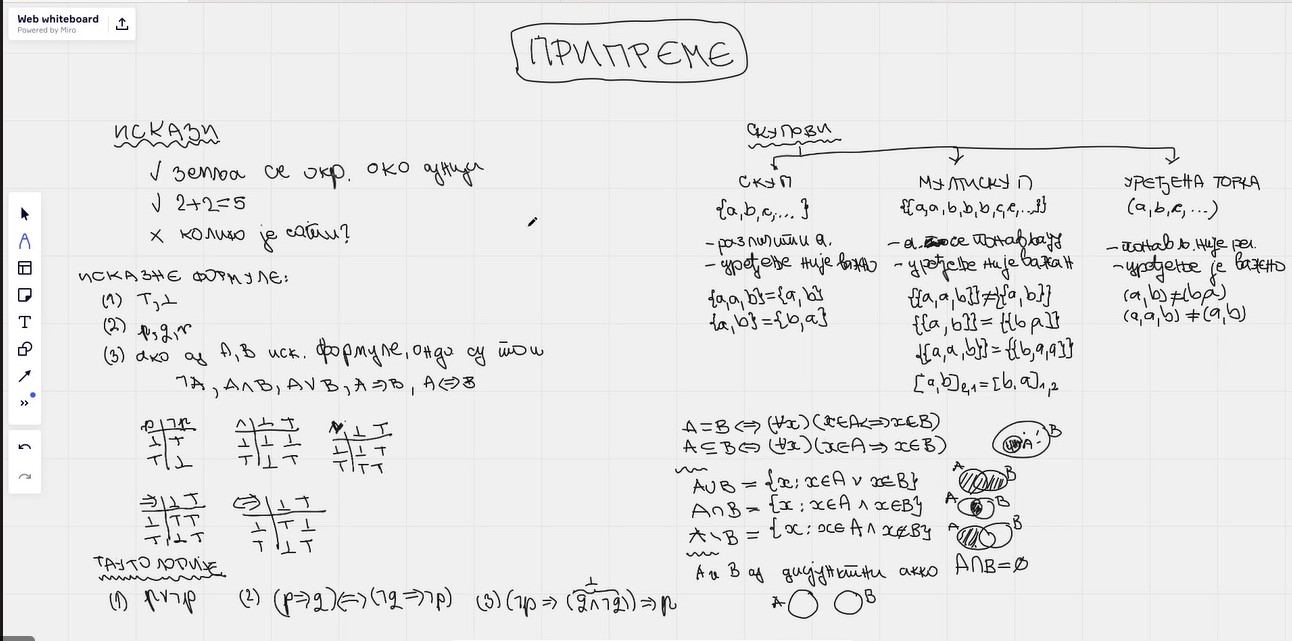 Web whiteboard
Powered by Miro
ПРИПРЕМЕ
ИСКАЗИ
√ Земља се окр. око сунца
√ 2+2=5
× колико је сати?
ИСКАЗНЕ ФОРМУЛЕ:
(1) T,⊥
(2) p,q,r
(3) ако су A,B иск. формуле, онда су то и
¬A, A∧B, A∨B, A⇒B, A⇔B
p ¬p
⊥ T
T ⊥
∧ ⊥ T
⊥ ⊥ ⊥
T ⊥ T
∨ ⊥ T
⊥ ⊥ T
T T T
⇒ ⊥ T
⊥ T T
T ⊥ T
⇔ ⊥ T
⊥ T ⊥
T ⊥ T
ТАУТОЛОГИЈЕ
(1) p∨¬p (2) (p⇒q)⇔(¬q⇒¬p) (3) (¬p⇒(q∧¬q))⇒p
⊥
СКУПОВИ
СКУП
{a,b,c,...}
- различити
- уређење није важно
{a,a,b}={a,b}
{a,b}={b,a}
МУЛТИСКУП
{{a,a,b,b,b,c,c,...}}
се понављају
- уређење није важан
{{a,a,b}}≠{{a,b}}
{{a,b}}={{b,a}}
{{a,a,b}}={{b,a,a}}
[a,b]₂,₁=[b,a]₁,₂
УРЕЂЕНА ТОРКА
(a,b,c,...)
није
- уређење је важно
(a,b)≠(b,a)
(a,a,b)≠(a,b)
A=B⇔(∀x)(x∈A⇔x∈B)
A⊆B⇔(∀x)(x∈A⇒x∈B)
A B
A∪B = {x: x∈A ∨ x∈B}
A B
A∩B = {x: x∈A ∧ x∈B}
A B
A∖B = {x: x∈A ∧ x∉B}
A B
A и B су дисјунктни акко A∩B=∅
A B